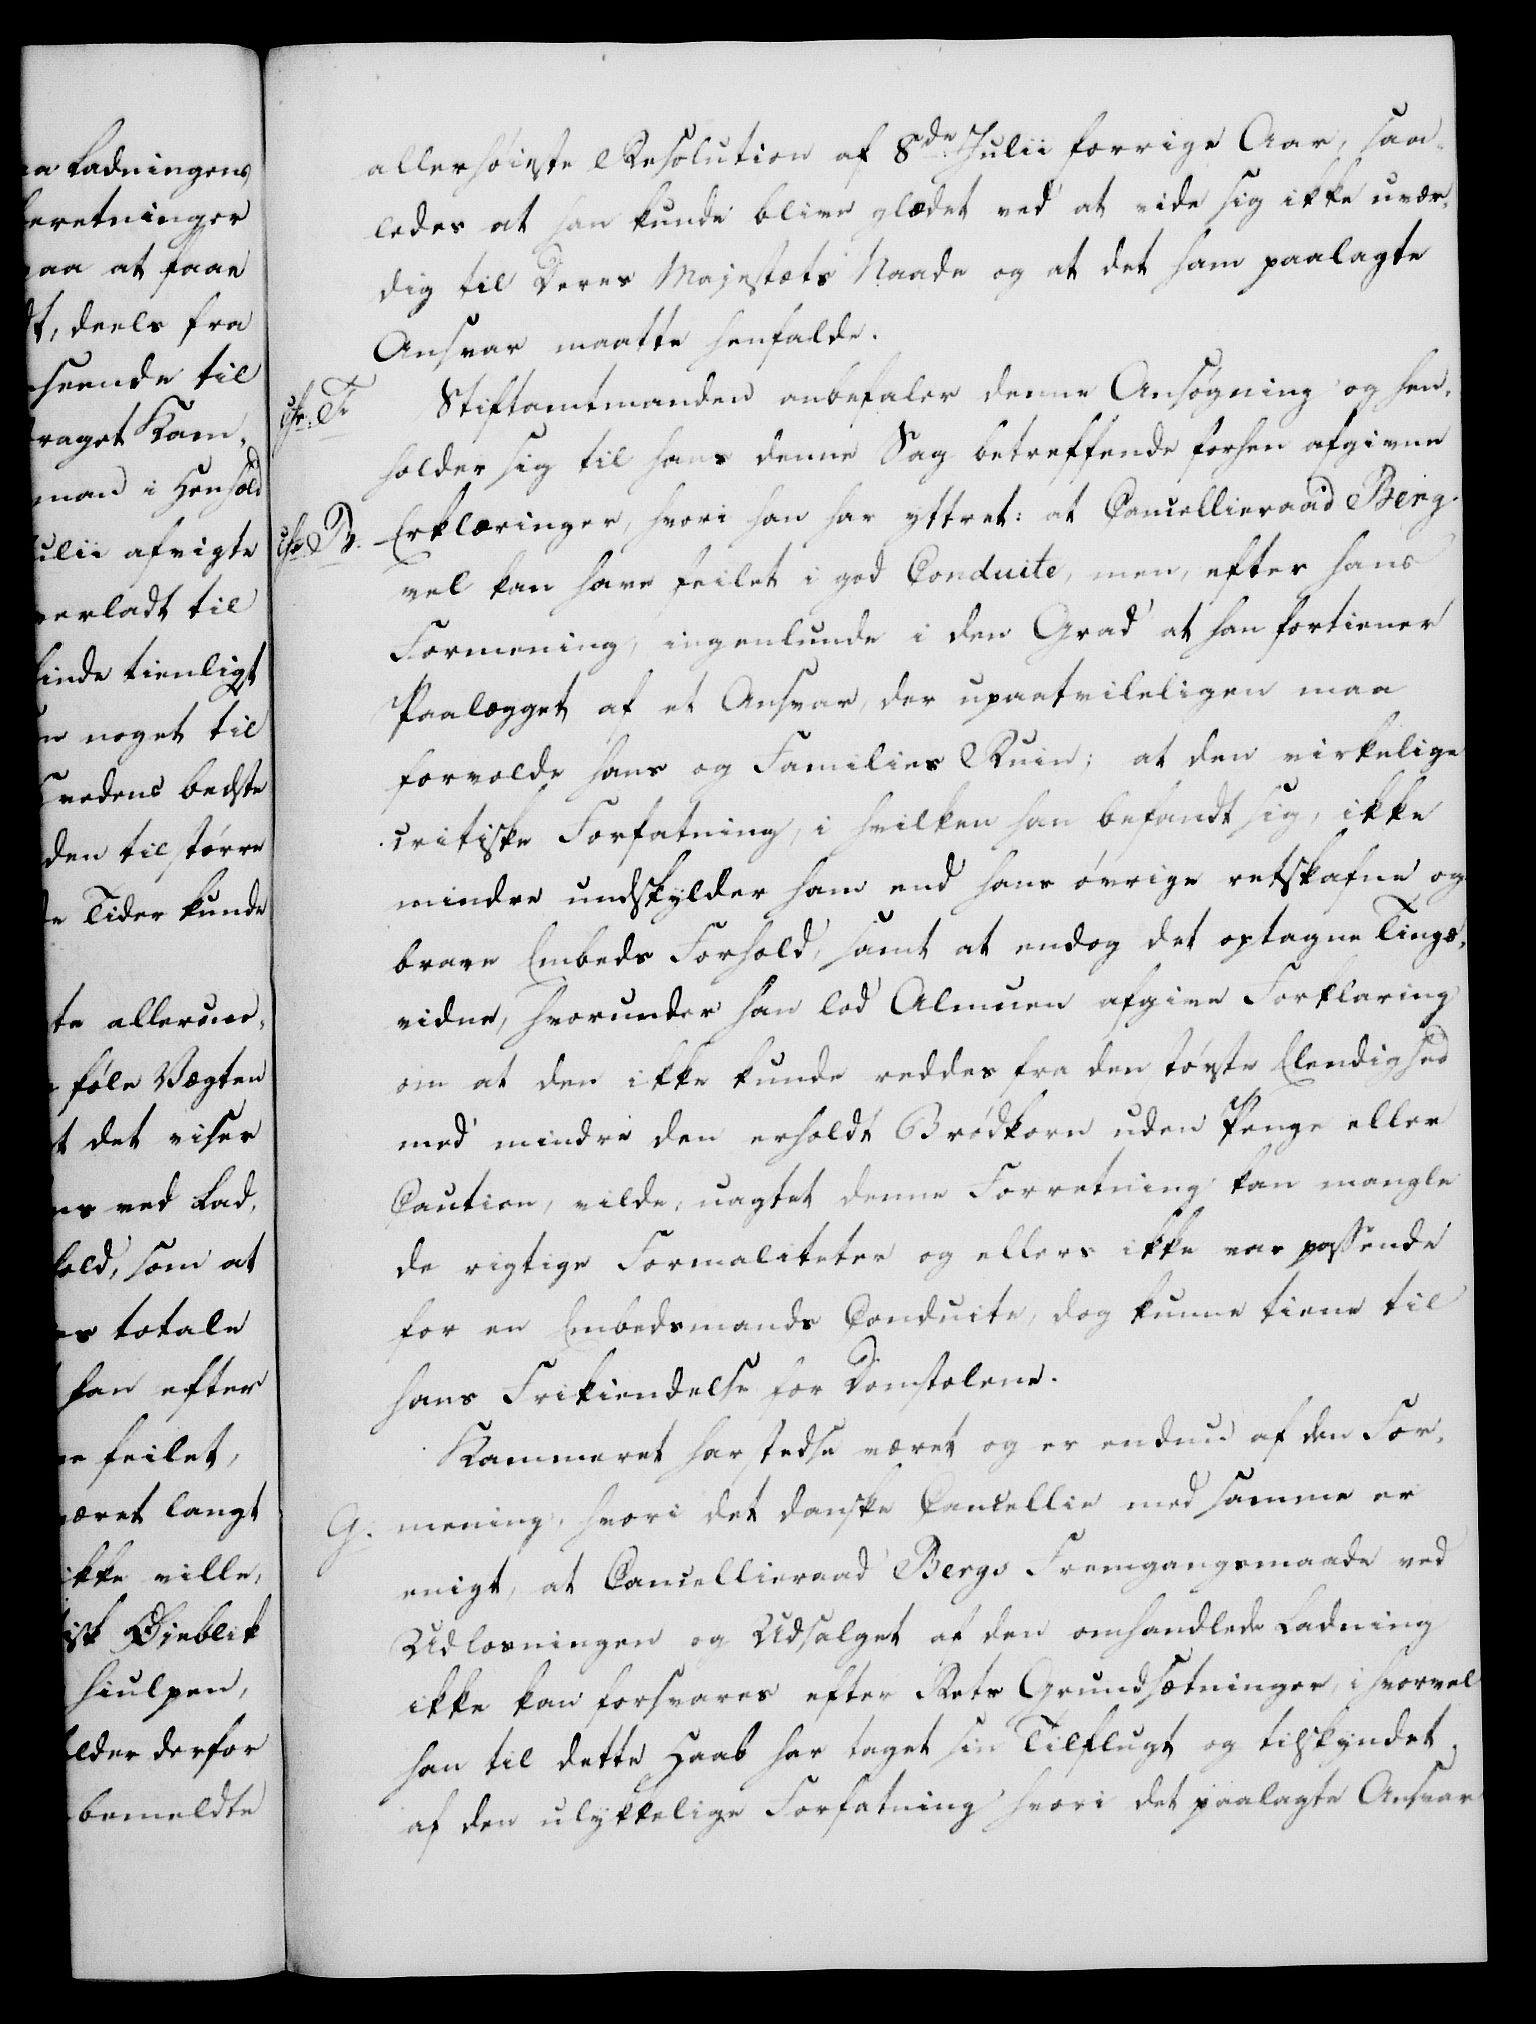 a Ladningens
eretninger
aa at faae
t, deels fra
seende til
raget Kam-
man i Henhold
ulii afvigte
verladt til
inde tienligt
noget til
vedens bedste
den til større
e Tider kunde
te allerun-
føle Vægten
t det viser
ns ved Lad-
hold, som at
es totale
han efter
e feilet,
været langt
ikke ville,
isk Øieblik
hiulpen,
older derfor
bemeldte
allerhøieste Resolution af 8de Julii forrige Aar, saa-
ledes at han kunde blive glædet ved at vide sig ikke uvær-
dig til Deres Majestæts Naade og at det ham paalagte
Ansvar maatte henfalde.
cfr. F. Stiftamtmanden anbefaler denne Ansøgning og hen-
holder sig til hans denne Sag betreffende forhen afgivne
cfr. B. Erklæringer, hvori han har yttret: at Cancellieraad Berg
vel kan have feilet i god Conduite, men, efter hans
Formening, ingenlunde i den Grad at han fortiener
Paalægget af et Ansvar, der upaatvileligen maa
forvolde hans og Families Ruin; at den virkelige
critiske Forfatning, i hvilken han befandt sig, ikke
mindre undskylder ham end hans øvrige retskafne og
brave Embeds Forhold, samt at endog det optagne Tings-
vidne, hvorunder han lod Almuen afgive Forklaring
om at den ikke kunde reddes fra den første Elendighed
med mindre den erholdt Brødkorn uden Penge eller
Caution, vilde, uagtet denne Forretning kan mangle
de rigtige Formaliteter og ellers ikke var passende
for en Embedsmands Conduite, dog kunne tiene til
hans Frikiendelse for Domstolene.
Kammeret har stedse været og er endnu af den For-
G. mening, hvori det danske Cancellie med samme er
enigt, at Cancellieraad Bergs Fremgangsmaade ved
Udlosningen og Udsalget af den omhandlede Ladning
ikke kan forsvares efter Rets Grundsætninger, i hvorvel
han til dette Haab har taget sin Tilflugt og tilskyndet
af den ulykkelige Forfatning hvori det paalagte Ansvar